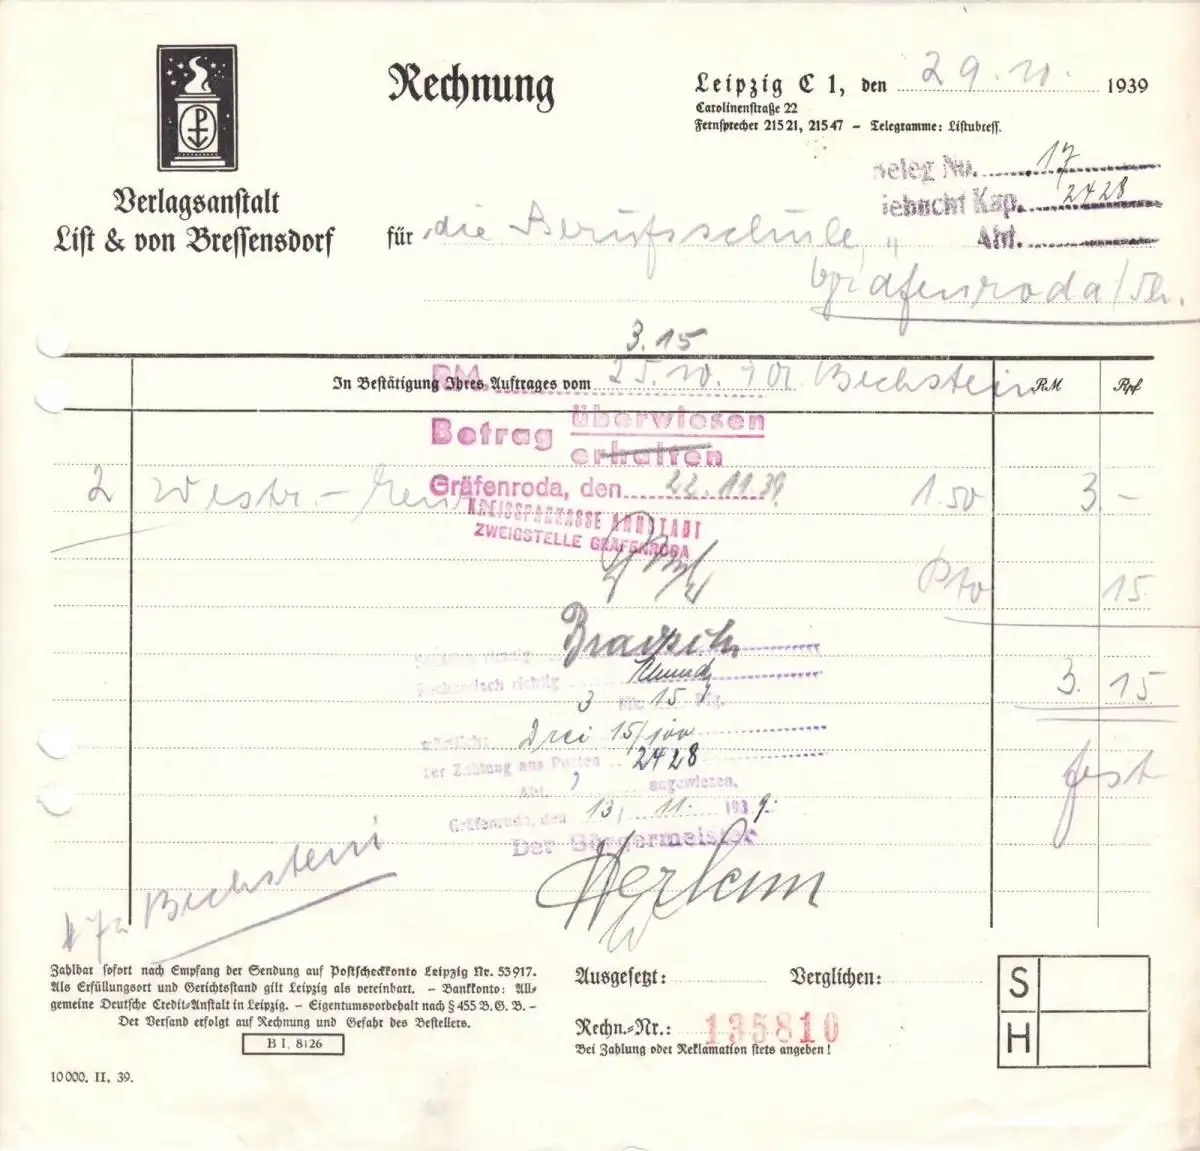 Rechnung
Leipzig C 1, den 29.10. 1939
Carolinenstraße 22
Fernsprecher 21521, 21547 – Telegramme: Listubress.
Verlagsanstalt
List & von Bressensdorf
Beleg No. 17
Gebucht Kap. 2428
Abt.
für die Berufsschule
Gräfenroda/Th.
3.15
RM.
In Bestätigung Ihres Auftrages vom 25.10. Bechstein
RM Rpf
Betrag überwiesen
erhalten
2 1.50 3.–
Gräfenroda, den 22.11.39
KREISSPARKASSE ARNSTADT
ZWEIGSTELLE GRÄFENRODA
Pto 15
richtig
Rechnerisch richtig
3 Mk. 15 Pfg.
3.15
wörtlich: Drei 15/100
zur Zahlung aus Posten 2428
fest
Abt. angewiesen.
Gräfenroda, den 13. 11. 1939.
Der Bürgermeister
Bechstein
Zahlbar sofort nach Empfang der Sendung auf Postscheckkonto Leipzig Nr. 53917.
Als Erfüllungsort und Gerichtsstand gilt Leipzig als vereinbart. – Bankkonto: All-
gemeine Deutsche Credit-Anstalt in Leipzig. – Eigentumsvorbehalt nach § 455 B. G. B. –
Der Versand erfolgt auf Rechnung und Gefahr des Bestellers.
B I, 8126
10000. II. 39.
Ausgesetzt: Verglichen:
Rechn.-Nr.: 135810
Bei Zahlung oder Reklamation stets angeben!
S
H